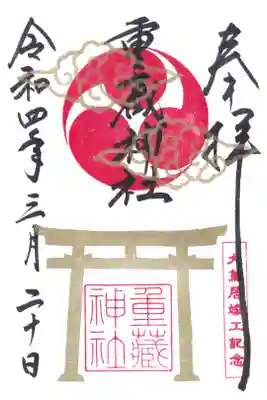 奉拝
大鳥居竣工記念
重蔵神社
重蔵
神社
令和四年三月二十日